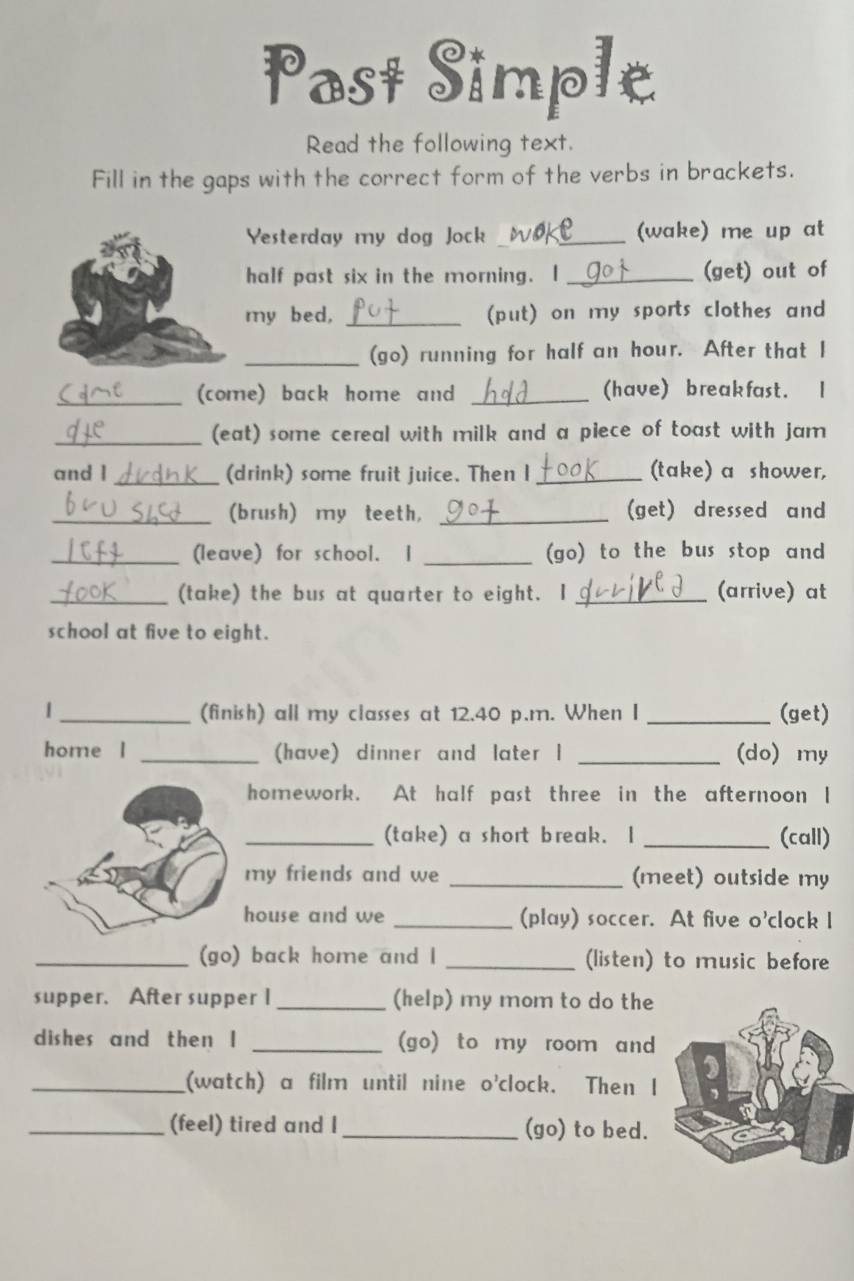 Past Simple
Read the following text.
Fill in the gaps with the correct form of the verbs in brackets.
Yesterday my dog Jock woke (wake) me up at
half past six in the morning. I got (get) out of
my bed, put (put) on my sports clothes and
____________ (go) running for half an hour. After that I
came (come) back home and had (have) breakfast. I
ate (eat) some cereal with milk and a piece of toast with jam
and I drank (drink) some fruit juice. Then I took (take) a shower,
brushed (brush) my teeth, got (get) dressed and
left (leave) for school. I ____________ (go) to the bus stop and
took (take) the bus at quarter to eight. I arrived (arrive) at
school at five to eight.
I ____________ (finish) all my classes at 12.40 p.m. When I ____________ (get)
home I ____________ (have) dinner and later I ____________ (do) my
homework. At half past three in the afternoon I
____________ (take) a short break. I ____________ (call)
my friends and we ____________ (meet) outside my
house and we ____________ (play) soccer. At five o'clock I
____________ (go) back home and I ____________ (listen) to music before
supper. After supper I ____________ (help) my mom to do the
dishes and then I ____________ (go) to my room and
____________ (watch) a film until nine o'clock. Then I
____________ (feel) tired and I ____________ (go) to bed.